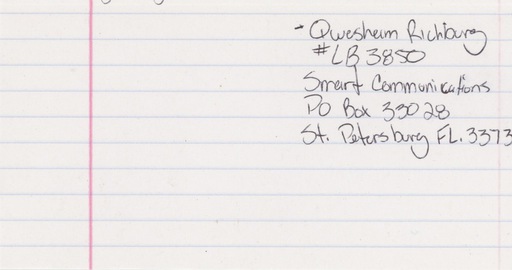 - Qwesheim Richburg
#LB3850
Smart Communications
PO Box 33028
St. Petersburg FL. 3373